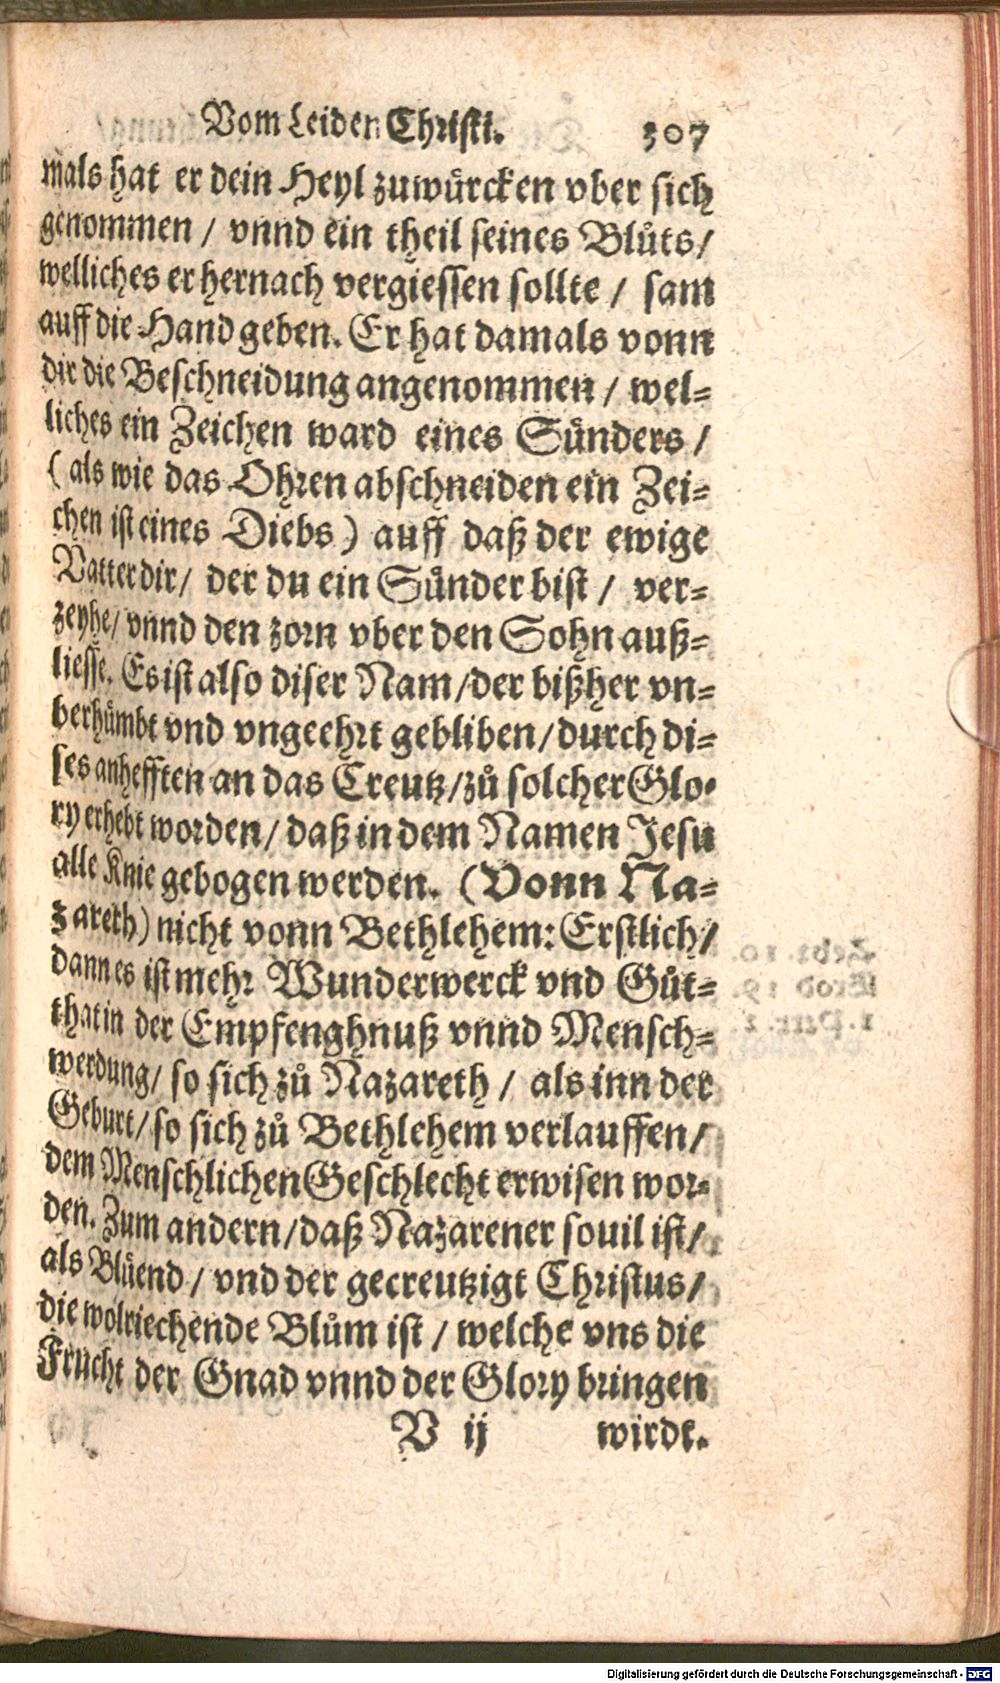 Vom Leiden Christi. 307
mals hat er dein Heyl zuwuͤrcken vber sich
genommen / vnnd ein theil seines Bluͤts /
welliches er hernach vergiessen sollte / sam
auff die Hand geben. Er hat damals vonn
dir die Beschneidung angenommen / wel-
liches ein Zeichen ward eines Suͤnders /
( als wie das Ohren abschneiden ein Zei-
chen ist eines Diebs ) auff daß der ewige
Vatter dir / der du ein Suͤnder bist / ver-
zeyhe / vnnd den zorn vber den Sohn auß-
liesse. Es ist also diser Nam / der bißher vn-
berhuͤmbt vnd vngeehrt gebliben / durch di-
ses anhefften an das Creutz / zů solcher Glo-
ry erhebt worden / daß in dem Namen Jesu
alle Knie gebogen werden. (Vonn Na-
zareth) nicht vonn Bethlehem: Erstlich /
dann es ist mehr Wunderwerck vnd Guͤt-
that in der Empfenghnuß vnnd Mensch-
werdung / so sich zů Nazareth / als inn der
Geburt / so sich zů Bethlehem verlauffen /
dem Menschlichen Geschlecht erwisen wor-
den. Zum andern / daß Nazarener souil ist /
als Bluͤend / vnd der gecreutzigt Christus /
die wolriechende Blům ist / welche vns die
Frucht der Gnad vnnd der Glory bringen
V ij wirdt.
Digitalisierung gefördert durch die Deutsche Forschungsgemeinschaft - DFG